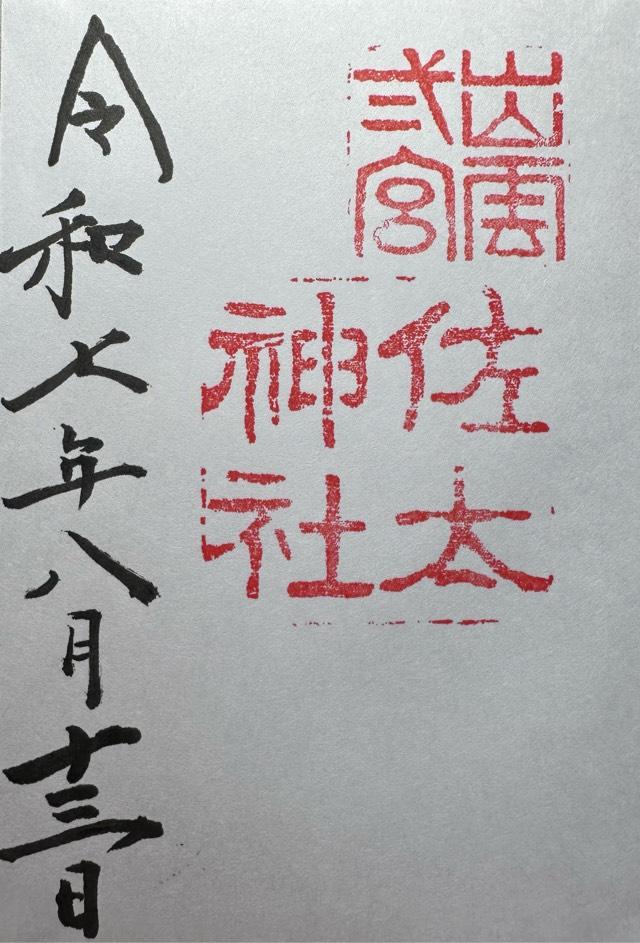 出雲
弍宮
佐太
神社
令和七年八月十三日